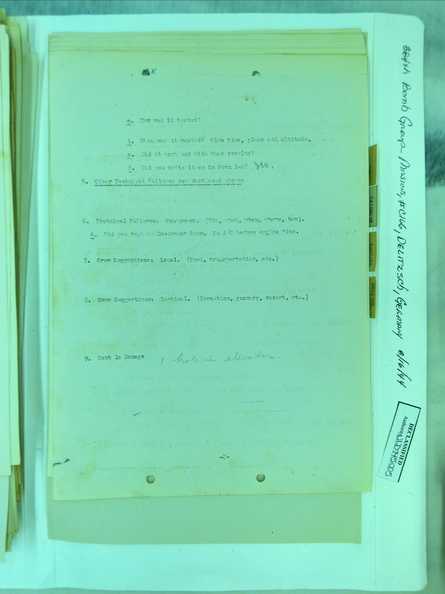 c. How was it tested?
d. When was it tested? Give time, place and altitude.
e. Did it work and with what results?
f. Did you write it up in Form 1-A? Yes.
5. Other Technical Failures not Mentioned Above:
6. Technical Failures: Equipment. (Who, what, when, where, how).
a. Did you
before engine
7. Crew Suggestions: Local. (Food, transportation, etc.)
8. Crew Suggestions: Tactical. (Formation, gunnery, escort, etc.)
9. Battle Damage 1 hole in elevator.
384th Bomb Group Missions, #C166, DELITZSCH, GERMANY 8/16/44
DECLASSIFIED
Authority